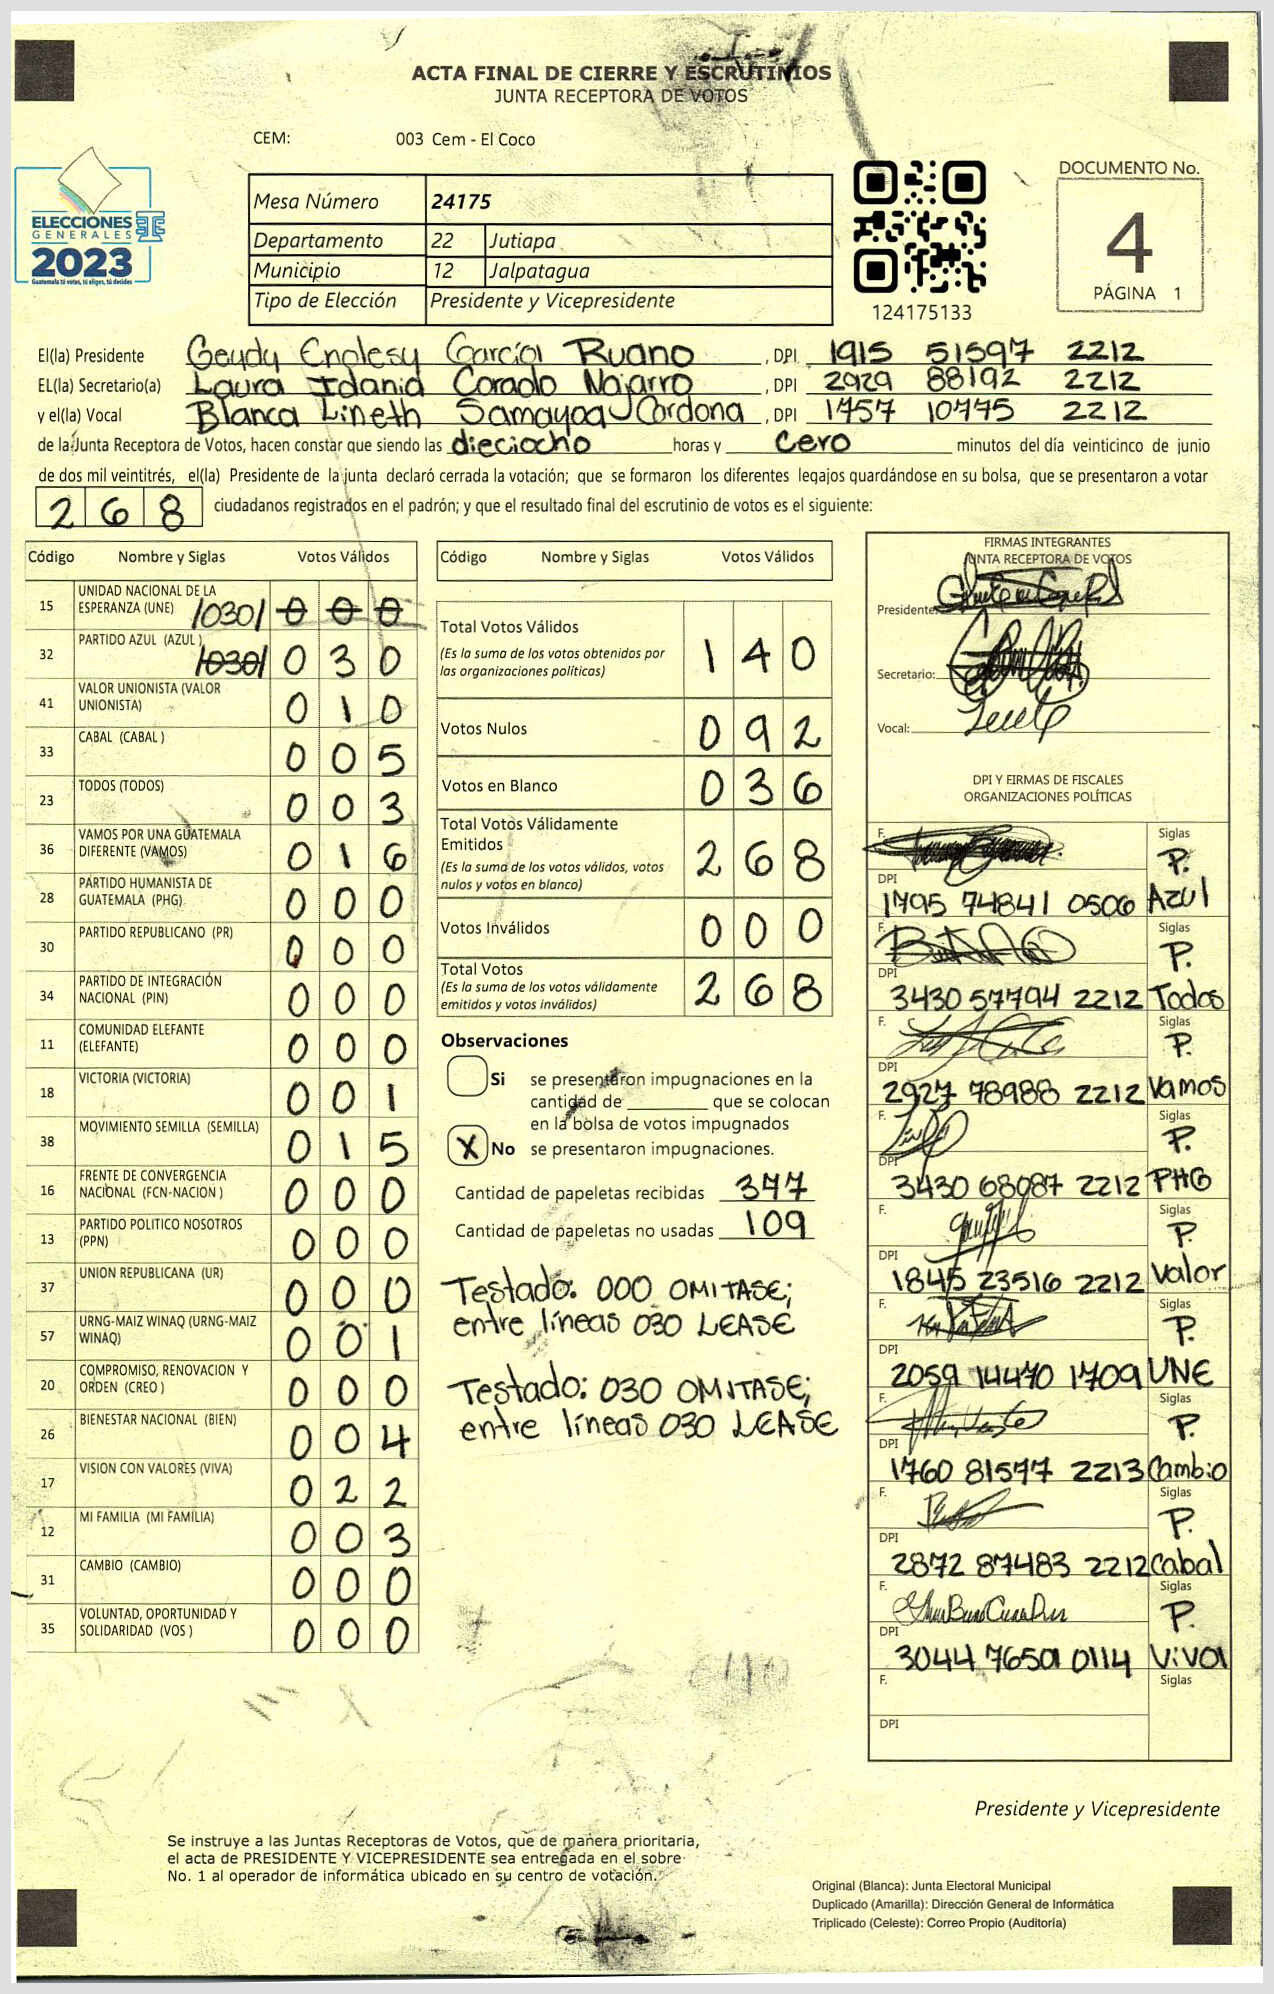 ACTA FINAL DE CIERRE Y ESCRUTINIOS
JUNTA RECEPTORA DE VOTOS
CEM: 003 Cem - El Coco
ELECCIONES
GENERALES
2023
Guatemala tú votas, tú eliges, tú decides
Mesa Número 24175
Departamento 22 Jutiapa
Municipio 12 Jalpatagua
Tipo de Elección Presidente y Vicepresidente
124175133
DOCUMENTO No.
4
PÁGINA 1
El(la) Presidente Geydy Enolesy García Ruano , DPI 1915 51597 2212
EL(la) Secretario(a) Laura Idania Corado Najarro , DPI 2929 88192 2212
y el(la) Vocal Blanca Lineth Samayoa Cordona , DPI 1757 10775 2212
de la Junta Receptora de Votos, hacen constar que siendo las dieciocho horas y cero minutos del día veinticinco de junio
de dos mil veintitrés, el(la) Presidente de la junta declaró cerrada la votación; que se formaron los diferentes legajos guardándose en su bolsa, que se presentaron a votar
268 ciudadanos registrados en el padrón; y que el resultado final del escrutinio de votos es el siguiente:
Código Nombre y Siglas Votos Válidos
15 UNIDAD NACIONAL DE LA ESPERANZA (UNE) /030/ 0 0 0
32 PARTIDO AZUL (AZUL) /030/ 0 3 0
41 VALOR UNIONISTA (VALOR UNIONISTA) 0 1 0
33 CABAL (CABAL ) 0 0 5
23 TODOS (TODOS) 0 0 3
36 VAMOS POR UNA GUATEMALA DIFERENTE (VAMOS) 0 1 6
28 PARTIDO HUMANISTA DE GUATEMALA (PHG) 0 0 0
30 PARTIDO REPUBLICANO (PR) 0 0 0
34 PARTIDO DE INTEGRACIÓN NACIONAL (PIN) 0 0 0
11 COMUNIDAD ELEFANTE (ELEFANTE) 0 0 0
18 VICTORIA (VICTORIA) 0 0 1
38 MOVIMIENTO SEMILLA (SEMILLA) 0 1 5
16 FRENTE DE CONVERGENCIA NACIONAL (FCN-NACION ) 0 0 0
13 PARTIDO POLITICO NOSOTROS (PPN) 0 0 0
37 UNION REPUBLICANA (UR) 0 0 0
57 URNG-MAIZ WINAQ (URNG-MAIZ WINAQ) 0 0 1
20 COMPROMISO, RENOVACION Y ORDEN (CREO ) 0 0 0
26 BIENESTAR NACIONAL (BIEN) 0 0 4
17 VISION CON VALORES (VIVA) 0 2 2
12 MI FAMILIA (MI FAMILIA) 0 0 3
31 CAMBIO (CAMBIO) 0 0 0
35 VOLUNTAD, OPORTUNIDAD Y SOLIDARIDAD (VOS ) 0 0 0
Código Nombre y Siglas Votos Válidos
Total Votos Válidos
(Es la suma de los votos obtenidos por las organizaciones políticas) 1 4 0
Votos Nulos 0 9 2
Votos en Blanco 0 3 6
Total Votos Válidamente Emitidos
(Es la suma de los votos válidos, votos nulos y votos en blanco) 2 6 8
Votos Inválidos 0 0 0
Total Votos
(Es la suma de los votos válidamente emitidos y votos inválidos) 2 6 8
Observaciones
Si se presentaron impugnaciones en la
cantidad de ________ que se colocan
en la bolsa de votos impugnados
X No se presentaron impugnaciones.
Cantidad de papeletas recibidas 377
Cantidad de papeletas no usadas 109
Testado: 000 OMITASE;
entre líneas 030 LEASE
Testado: 030 OMITASE;
entre líneas 030 LEASE
FIRMAS INTEGRANTES
JUNTA RECEPTORA DE VOTOS
Presidente:
Secretario:
Vocal:
DPI Y FIRMAS DE FISCALES
ORGANIZACIONES POLÍTICAS
F. Siglas P. Azul
DPI 1795 74841 0506
F. Siglas P. Todos
DPI 3430 57794 2212
F. Siglas P. Vamos
DPI 2927 78988 2212
F. Siglas P. PHG
DPI 3430 68087 2212
F. Siglas P. Valor
DPI 1845 23516 2212
F. Siglas P. UNE
DPI 2059 14470 1709
F. Siglas P. Cambio
DPI 1760 81577 2213
F. Siglas P. Cabal
DPI 2872 87483 2212
F. Siglas P. Viva
DPI 3044 76501 0114
F. Siglas
DPI
Presidente y Vicepresidente
Se instruye a las Juntas Receptoras de Votos, que de manera prioritaria,
el acta de PRESIDENTE Y VICEPRESIDENTE sea entregada en el sobre
No. 1 al operador de informática ubicado en su centro de votación.
Original (Blanca): Junta Electoral Municipal
Duplicado (Amarilla): Dirección General de Informática
Triplicado (Celeste): Correo Propio (Auditoría)